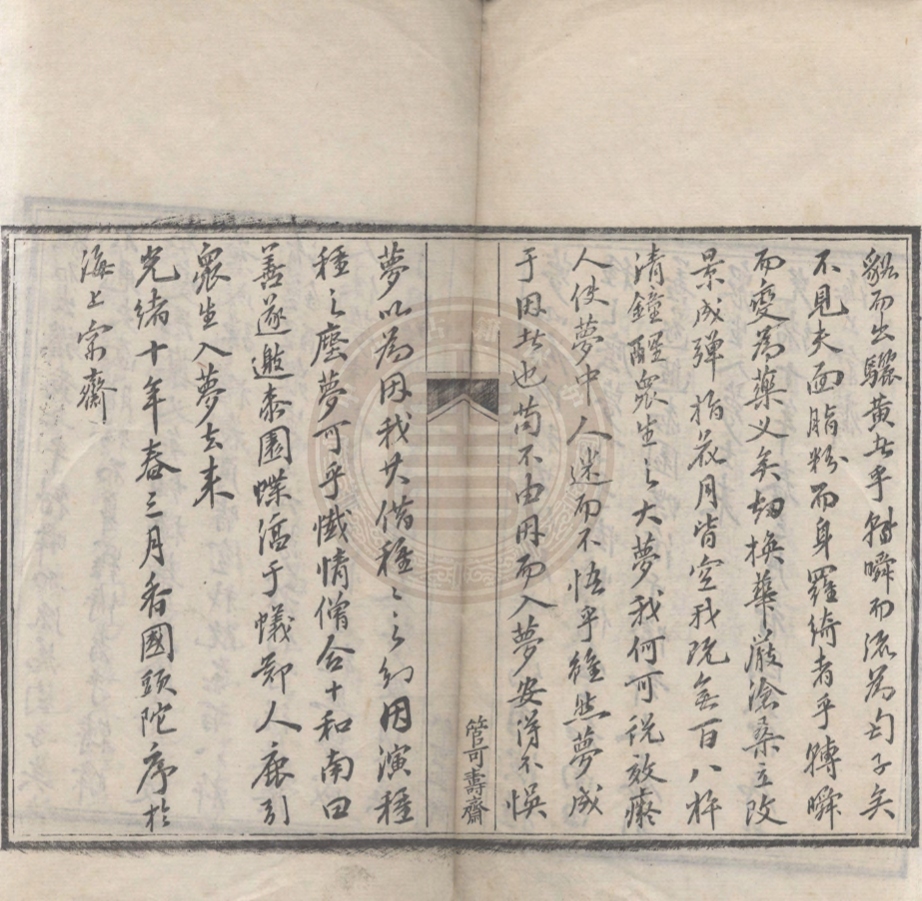 貂而出驪黃者乎轉瞬而流為匄子矣
不見夫面脂粉而身羅綺者乎轉瞬
而變為藥义矣刼換華嚴滄桑立改
景成彈指花月皆空我既無百八杵
清鐘醒眾生之大夢我何可說效癡
人使夢中人迷而不悟乎雖然夢成
于因者也苟不由因而入夢安得不悞
管可壽齋
夢以為因我其借種之之幻因演種
種之塵夢可乎懺情僧合十和南曰
善遂邀泰園蝶淳于蟻鄭人鹿引
眾生入夢去來
光緒十年春三月香國頭陀序於
海上宗齋